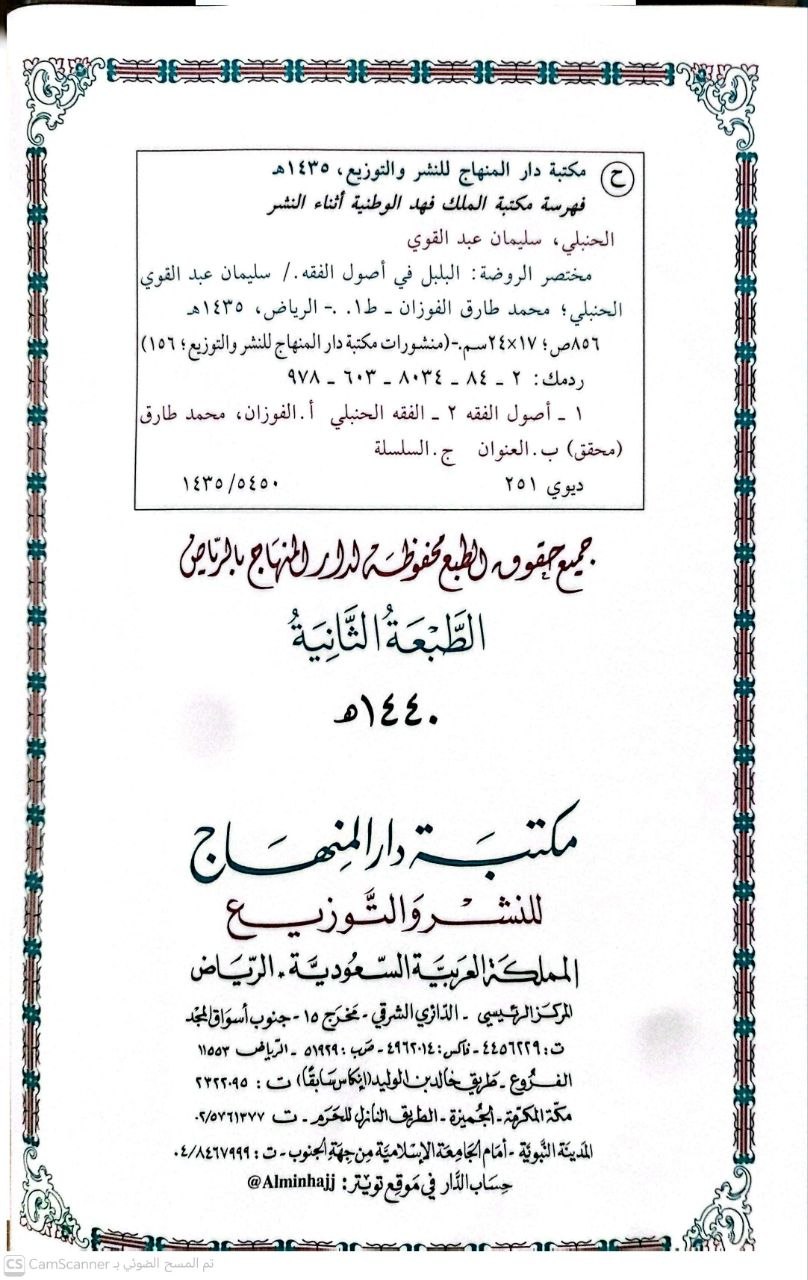 ح مكتبة دار المنهاج للنشر والتوزيع، ١٤٣٥هـ
فهرسة مكتبة الملك فهد الوطنية أثناء النشر
الحنبلي، سليمان عبد القوي
مختصر الروضة: البلبل في أصول الفقه./ سليمان عبد القوي
الحنبلي؛ محمد طارق الفوزان ـ ط١. .- الرياض، ١٤٣٥هـ
٨٥٦ص؛ ١٧×٢٤سم.-(منشورات مكتبة دار المنهاج للنشر والتوزيع؛ ١٥٦)
ردمك: ٢ ـ ٨٤ ـ ٨٠٣٤ ـ ٦٠٣ ـ ٩٧٨
١ ـ أصول الفقه ٢ ـ الفقه الحنبلي أ.الفوزان، محمد طارق
(محقق) ب.العنوان ج.السلسلة
ديوي ٢٥١ ١٤٣٥/٥٤٥٠
جميع حقوق الطبع محفوظة لدار المنهاج بالرياض
الطَّبْعَةُ الثَّانِيَةُ
١٤٤٠هـ
مكتبة دار المنهاج
للنشر والتوزيع
المملكة العربية السعودية . الرياض
المركز الرئيسي - الدائري الشرقي - مخرج ١٥ - جنوب أسواق المجد
ت: ٤٤٥٦٢٢٩ - فاكس: ٤٩٦٢٠١٤ - ص ب: ٥١٩٢٩ - الرياض ١١٥٥٣
الفروع - طريق خالد بن الوليد (إنكاس سابقًا) ت: ٢٣٢٢٠٩٥
مكة المكرمة - الجميزة - الطريق النازل للحرم - ت ٠٢/٥٧٦١٣٧٧
المدينة النبوية - أمام الجامعة الإسلامية من جهة الجنوب - ت: ٠٤/٨٤٦٧٩٩٩
حساب الدار في موقع تويتر: @Alminhajj
CS CamScanner تم المسح الضوئي بـ